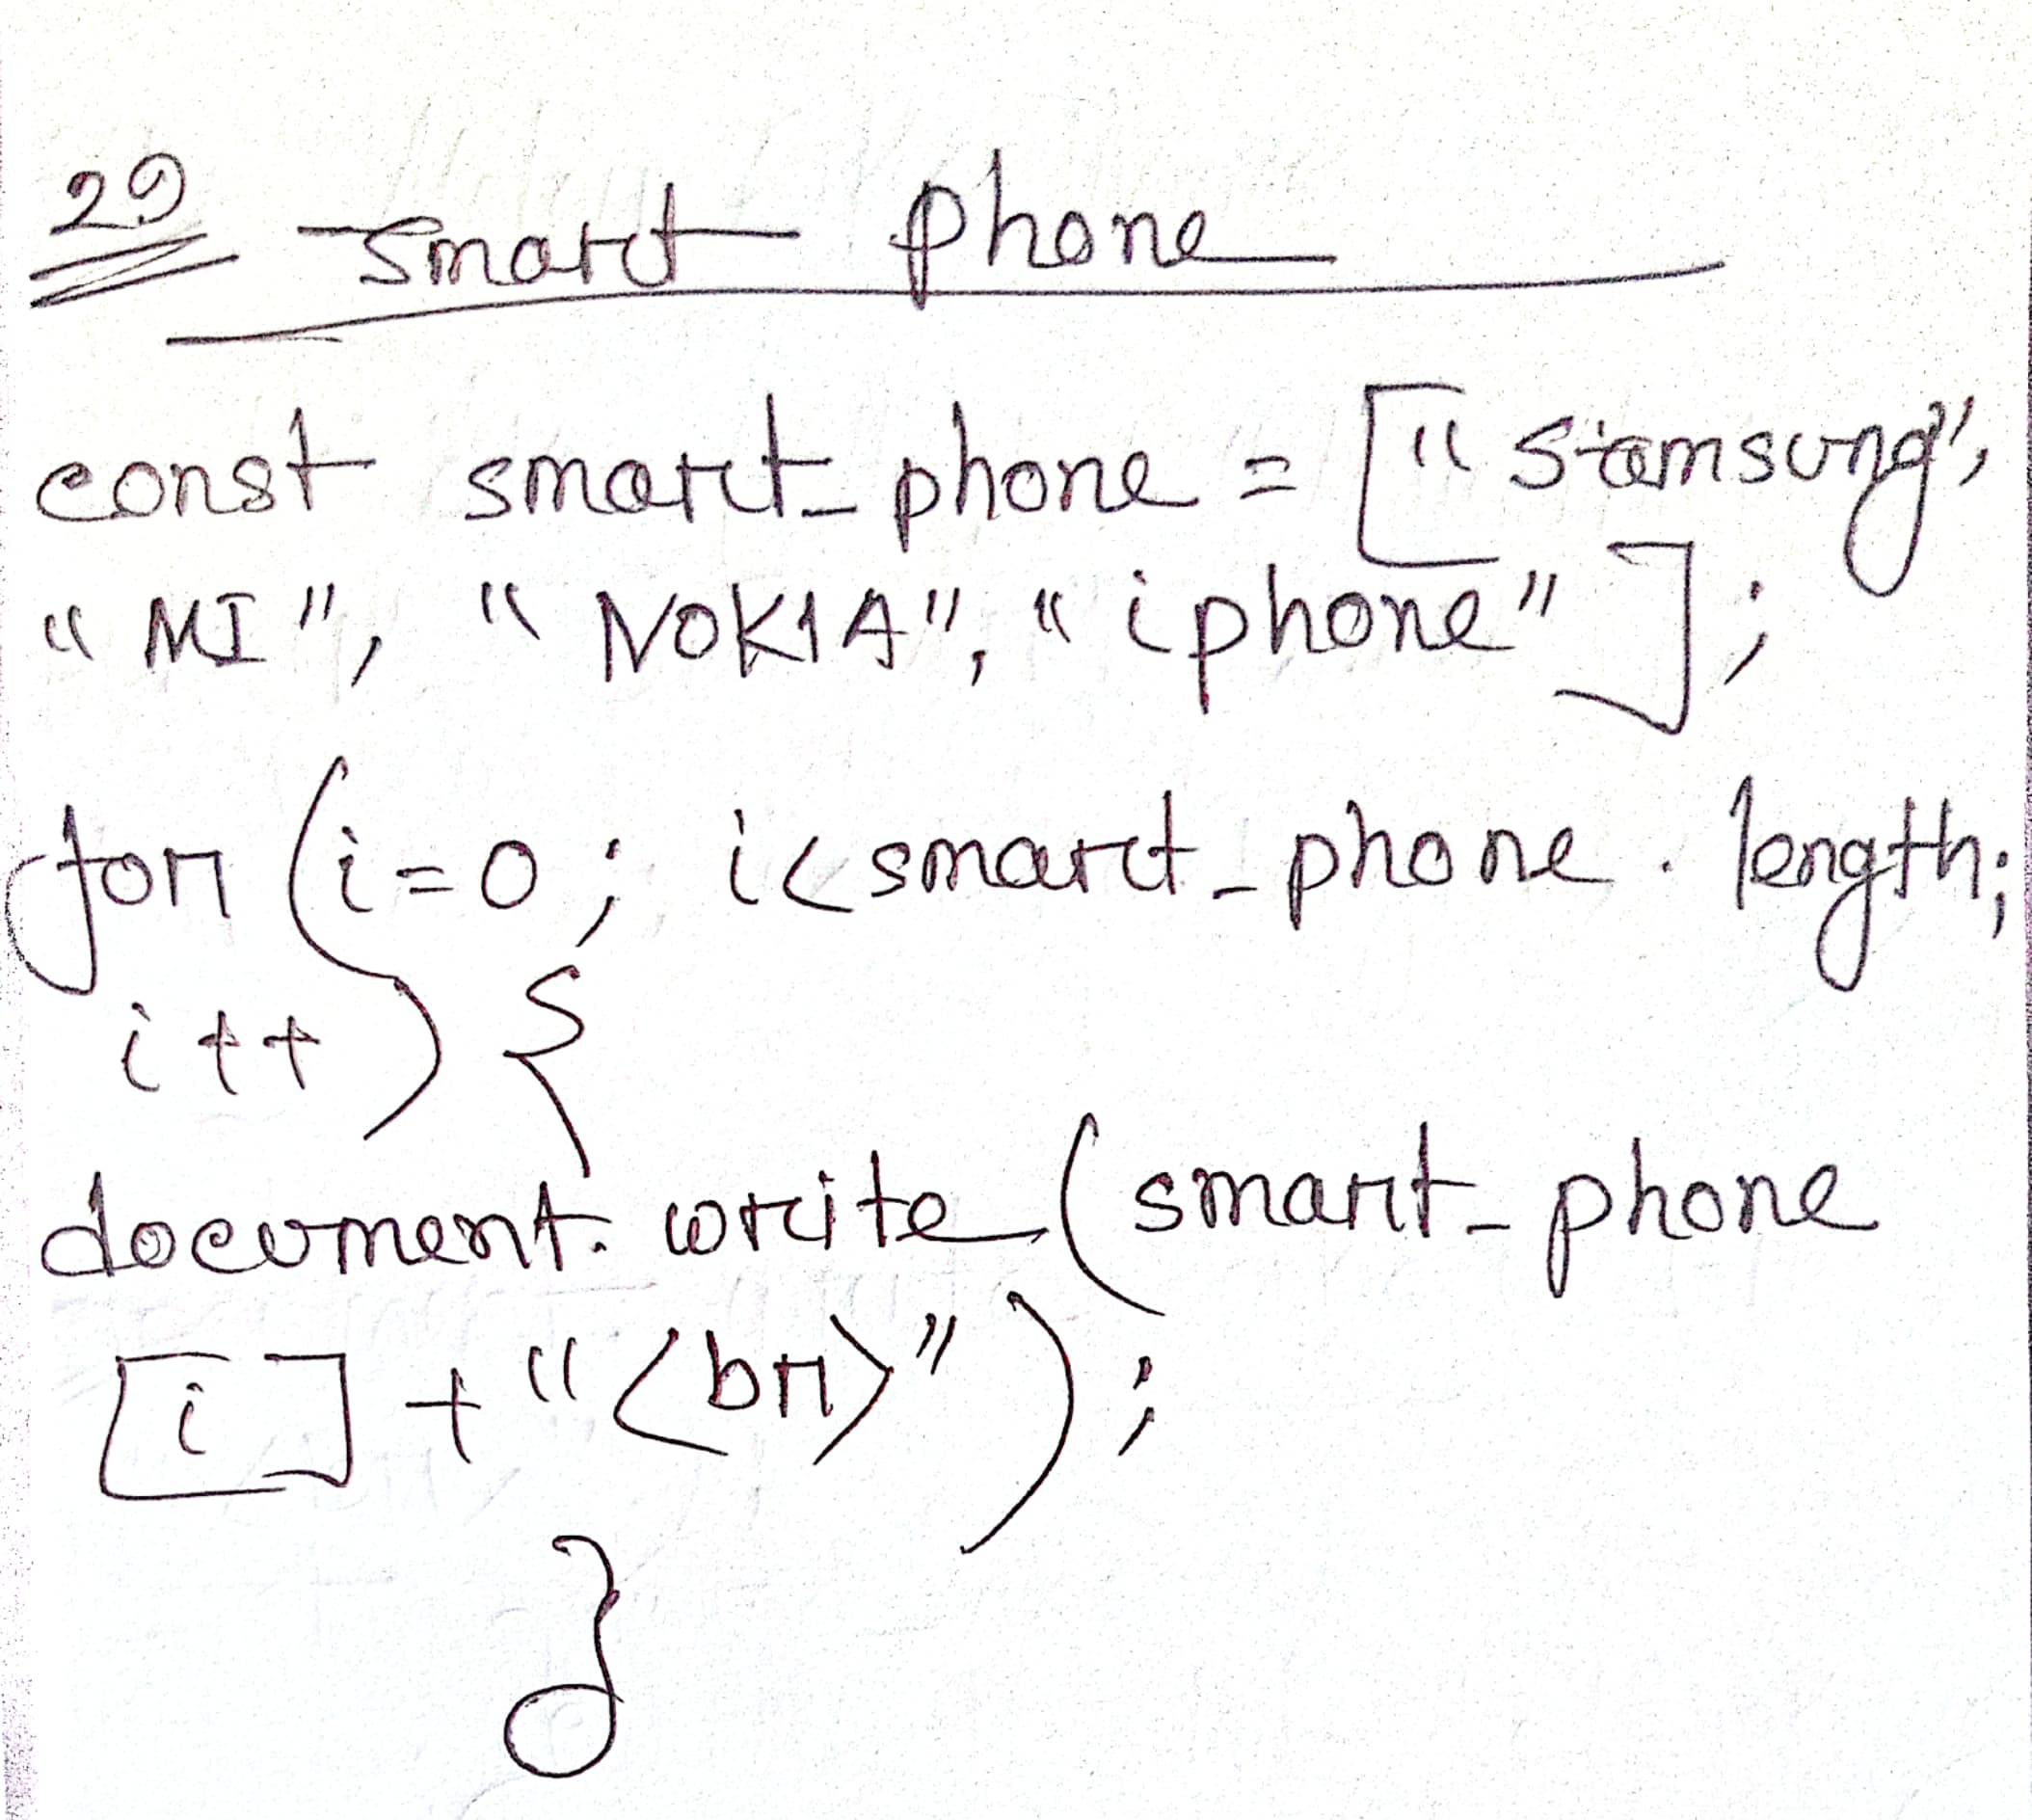 29 Smart phone
const smart_phone = ["Samsung",
"MI", "NOKIA", "iphone"];
for (i=0; i<smart_phone.length;
i++) {
document.write(smart_phone
[i] + "<br>");
}